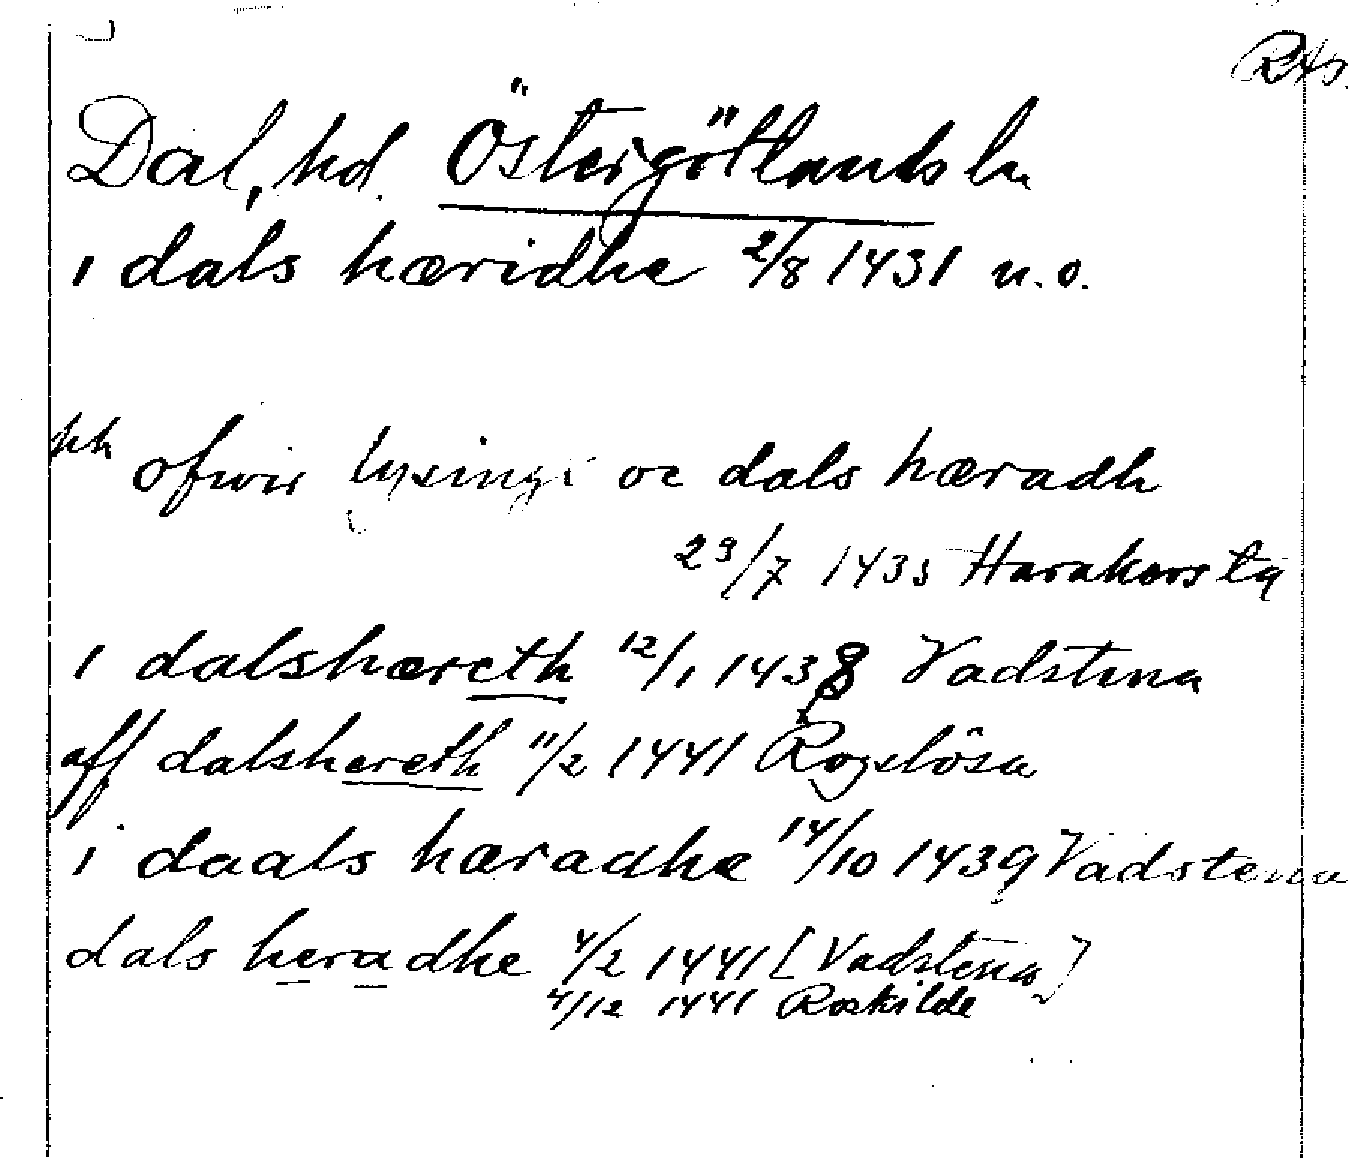 RAp.
Dal, hd. Östergötlands ln
i dals hæridhe 2/8 1431 u.o.
hh ofwir lysingx oc dals hæradh
29/7 1435 Harakærsta
i dalshæreth 12/1 1438 Vadstena
aff dalshereth 11/2 1441 Rogslösa
i daals hæradhe 14/10 1439 Vadstena
dals heradhe 4/2 1441 [Vadstena]
4/12 1441 Roskilde